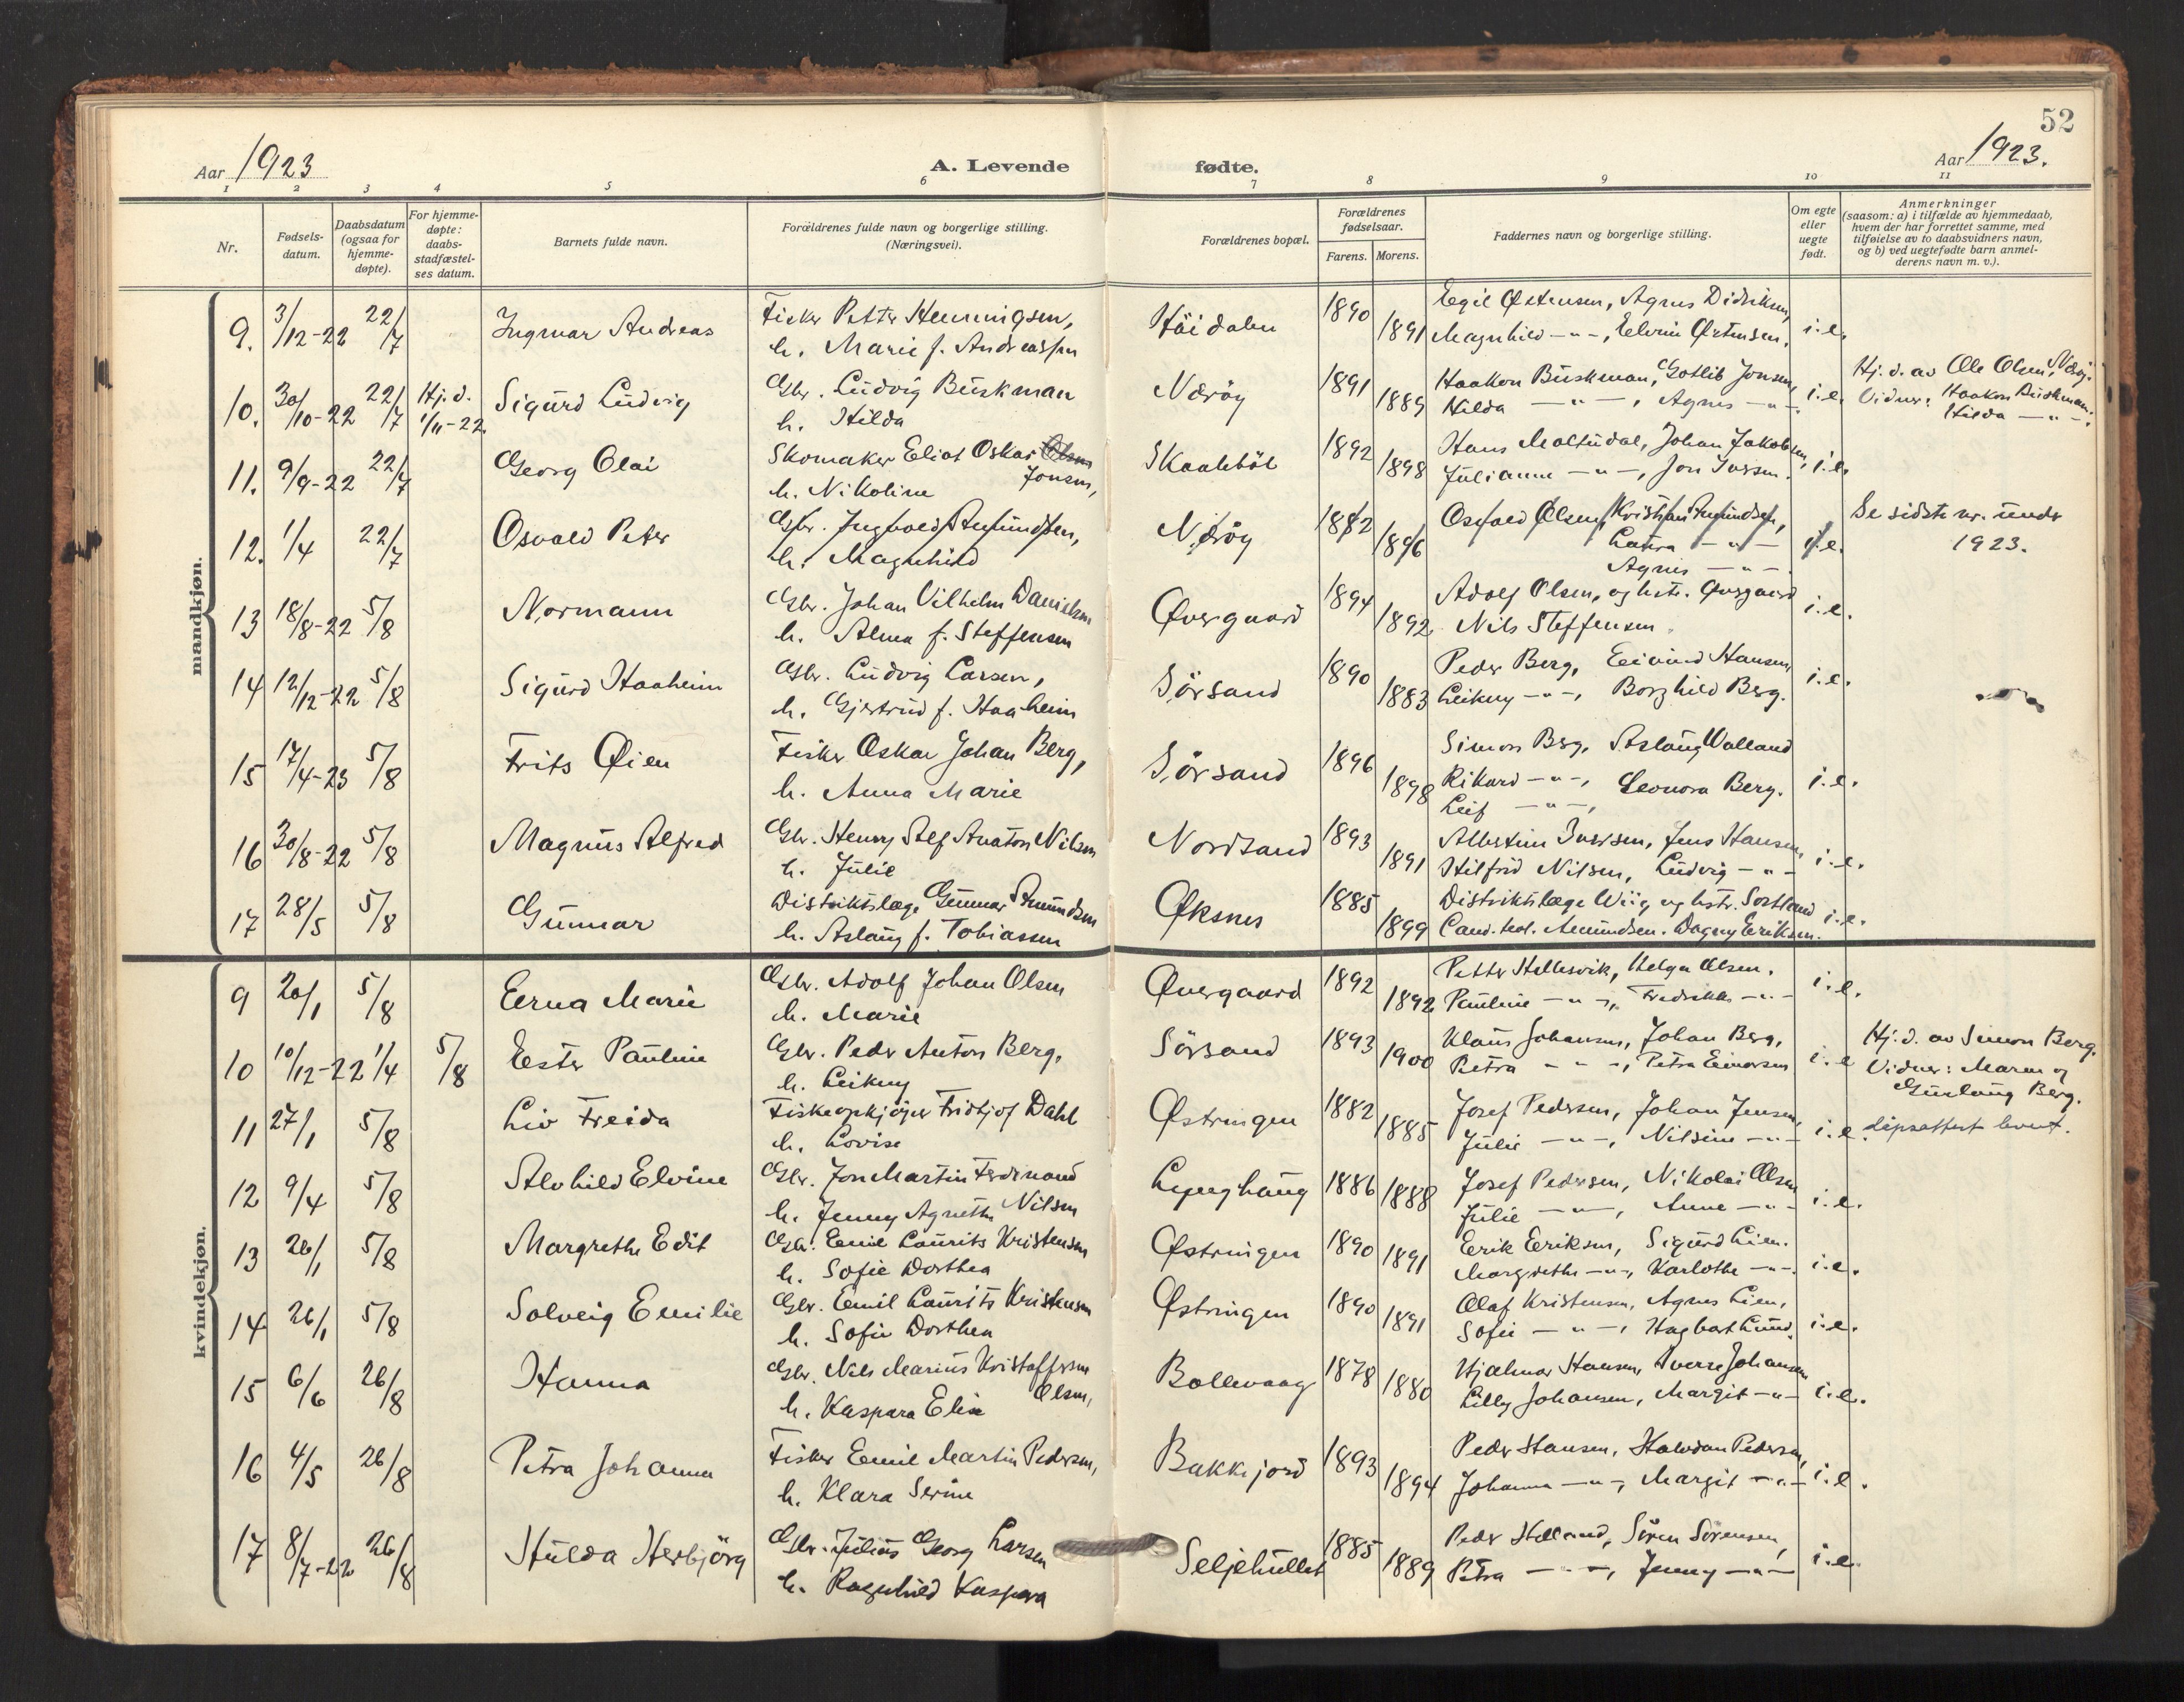 52
Aar 1923
A. Levende
fødte.
Aar 1923.
1 2 3 4 5 6 7 8 9 10 11
Nr.
Fødsels-
datum.
Daabsdatum
(ogsaa for
hjemme-
døpte).
For hjemme-
døpte:
daabs-
stadfæstel-
ses datum.
Barnets fulde navn.
Forældrenes fulde navn og borgerlige stilling.
(Næringsvei).
Forældrenes bopæl.
Forældrenes
fødselsaar.
Farens. Morens.
Faddernes navn og borgerlige stilling.
Om egte
eller
uegte
født.
Anmerkninger
(saasom: a) i tilfælde av hjemmedaab,
hvem der har forrettet samme, med
tilføielse av to daabsvidners navn,
og b) ved uegtefødte barn anmel-
derens navn m. v.).
mandkjøn.
9. 3/12-22 22/7 Ingmar Andreas
Fisker Petter Henningsen,
h. Marie f. Andreassen
Høidalen 1890 1891
Egil Østensen, Agnus Didriksen,
Magnhild —"—, Elvin Østensen. i.e.
10. 30/10-22 22/7 Hj.d. 1/11-22. Sigurd Ludvig
Gbr. Ludvig Buskman
h. Hilda
Nærøy 1891 1889
Haakon Buskman, Gotlib Jonsen,
Hilda —"—, Agnes —"—. i.e.
Hj. d. av Ole Olsen, Nærøy.
Vidner: Haakon Buskman.
Hilda —"—.
11. 9/9-22 22/7 Georg Olai
Skomaker Eliot Oskar Olsen
Jonsen,
h. Nikoline
Skaalebøl 1892 1898
Hans Maltudal, Johan Jakobsen,
Julianne —"—, Jon Iversen. i.e.
12. 1/4 22/7 Osvald Peter
Gbr. Ingvald Amundsen,
h. Magnhild
Nærøy 1882 1896
Osvald Olsen, Kristian Amundsen,
Laura —"—
Agnes —"—. i.e.
Se sidste nr. under
1923.
13 18/8-22 5/8 Normann
Gbr. Johan Vilhelm Danielsen
h. Alma f. Steffensen
Øvergaard 1894 1892
Adolf Olsen, og hstr. Øvergaard
Nils Steffensen. i.e.
14 12/12-22 5/8 Sigurd Haaheim
Gbr. Ludvig Larsen,
h. Gjertrud f. Haaheim
Sørsand 1890 1883
Peder Berg, Eivind Hansen,
Leikny —"—, Borghild Berg. i.e.
15 17/4-23 5/8 Frits Øien
Fisker Oskar Johan Berg,
h. Anna Marie
Sørsand 1896 1898
Simon Berg, Aslaug Valland
Rikard —"—, Leonora Berg.
Leif —"—, i.e.
16 30/8-22 5/8 Magnus Alfred
Gbr. Henry Alf Anaton Nilsen
h. Julie
Nordsand 1893 1891
Albertin Iversen, Jens Hansen
Hilfrid Nilsen, Ludvig —"— i.e.
17 28/5 5/8 Gunnar
Distriktslæge Gunnar Amundsen
h. Aslaug f. Tobiassen
Øksnes 1885 1899
Distriktslæge Wiig og hstr. Sortland
Cand. teol. Amundsen. Dagny Eriksen. i.e.
kvindekjøn.
9 20/1 5/8 Erna Marie
Gbr. Adolf Johan Olsen
h. Marie
Øvergaard 1892 1892
Petter Hellesvik, Helga Olsen.
Pauline —"—, Fredrikke —"— i.e.
10 10/12-22 1/4 5/8 Ester Pauline
Gbr. Peder Anton Berg,
h. Leikny
Sørsand 1893 1900
Klaus Johansen, Johan Berg,
Petra —"—, Petra Einarsen i.e
Hj. d. av Simon Berg.
Vidner: Maren og
Gunlaug Berg.
11 27/1 5/8 Liv Freida
Fiskeopkjøper Fridtjof Dahl
h. Lovise
Østringen 1882 1885
Josef Pedersen, Johan Jensen,
Julie —"—, Nilsine —"— i.e.
dåpsattest levert.
12 9/4 5/8 Alvhild Elvine
Gbr. Jon Martin Ferdinand
Nilsen
h. Jenny Agnethe
Lynghaug 1886 1888
Josef Pedersen, Nikolai Olsen
Julie —"—, Anne —"— i.e.
13 26/1 5/8 Margrethe Edit
Gbr. Emil Laurits Kristensen
h. Sofie Dorthea
Østringen 1890 1891
Erik Eriksen, Sigurd Lien.
Margrethe —"—, Karlotte —"—. i.e.
14 26/1 5/8 Solveig Emilie
Gbr. Emil Laurits Kristensen
h. Sofie Dorthea
Østringen 1890 1891
Olaf Kristensen, Agnes Lien,
Sofie —"—, Hagbart Lund. i.e.
15 6/6 26/8 Hanna
Gbr. Nils Marius Kristoffersen
Olsen,
h. Kaspara Elise
Bollevaag 1878 1880
Hjalmar Hansen, Sverre Johansen
Lilly Johansen, Margit —"— i.e.
16 4/5 26/8 Petra Johanna
Fisker Emil Martin Pedersen,
h. Klara Serine
Bakkejord 1893 1894
Peder Hansen, Halvdan Pedersen,
Johanna —"—, Margit —"— i.e.
17 8/7-22 26/8 Hulda Herbjörg
Gbr. Julius Georg Larsen
h. Ragnhild Kaspara
Seljehullet 1885 1889
Peder Helland, Sören Sörensen,
Petra —"—, Jenny —"— i.e.